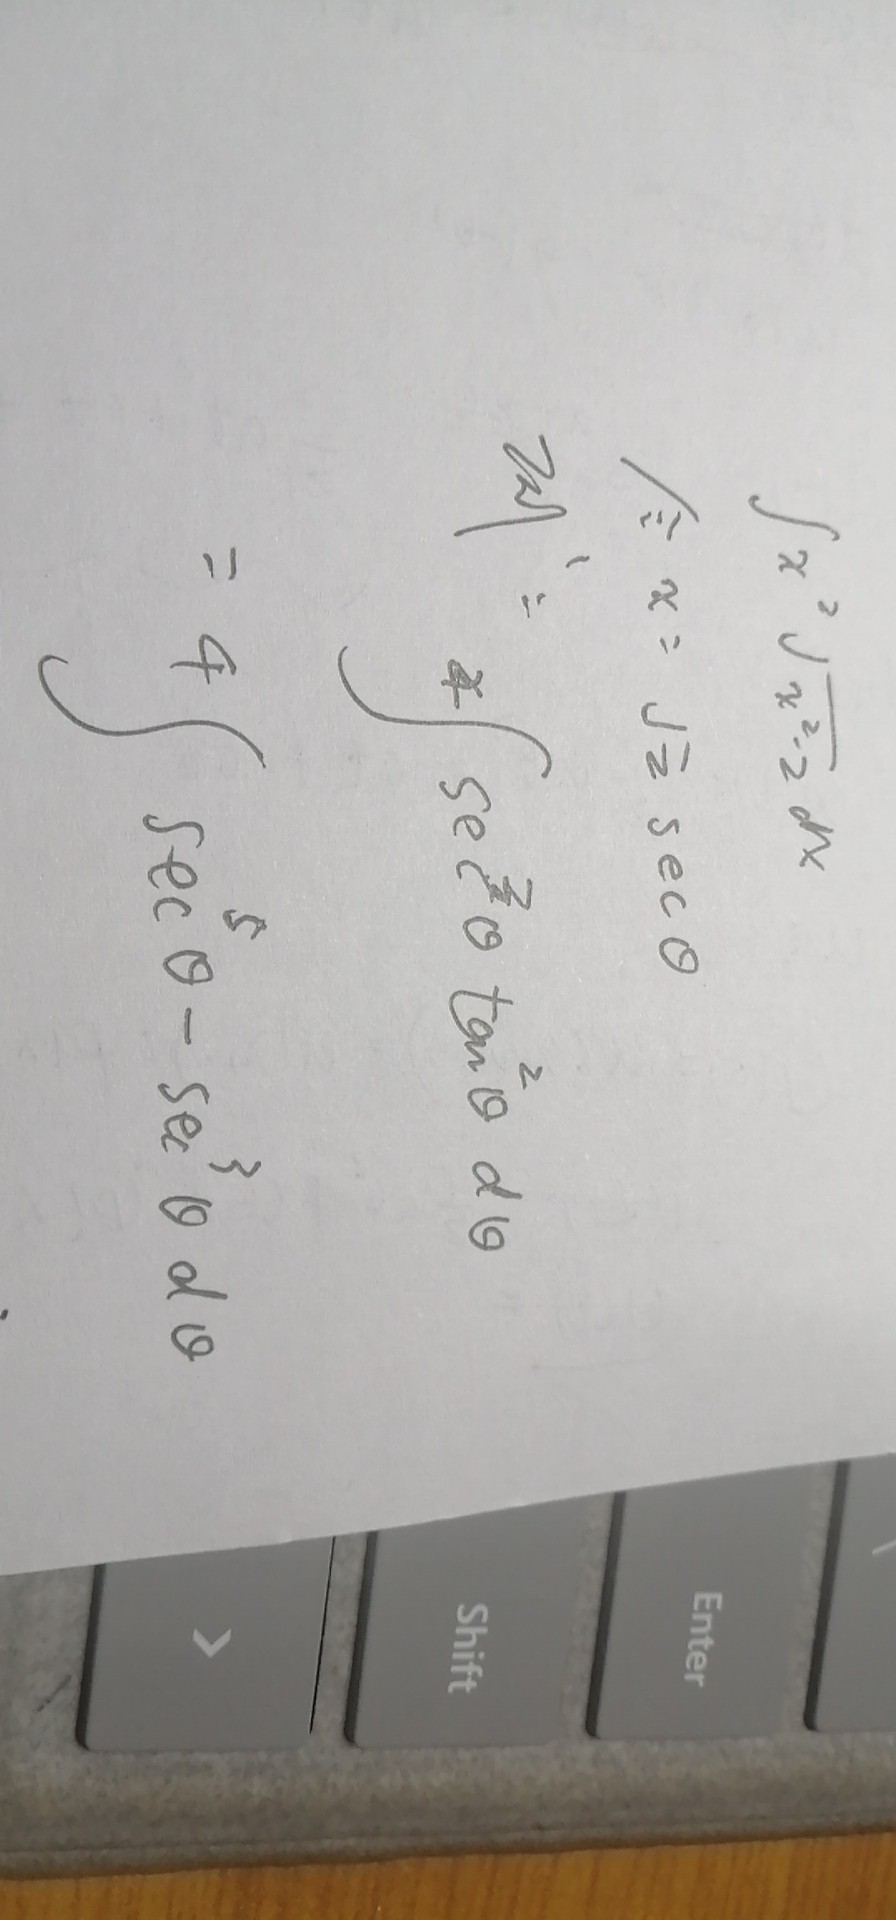 ∫ x² √(x²-2) dx
令 x = √2 sec θ
= 4 ∫ sec³ θ tan² θ dθ
= 4 ∫ sec⁵ θ - sec³ θ dθ
Enter
Shift